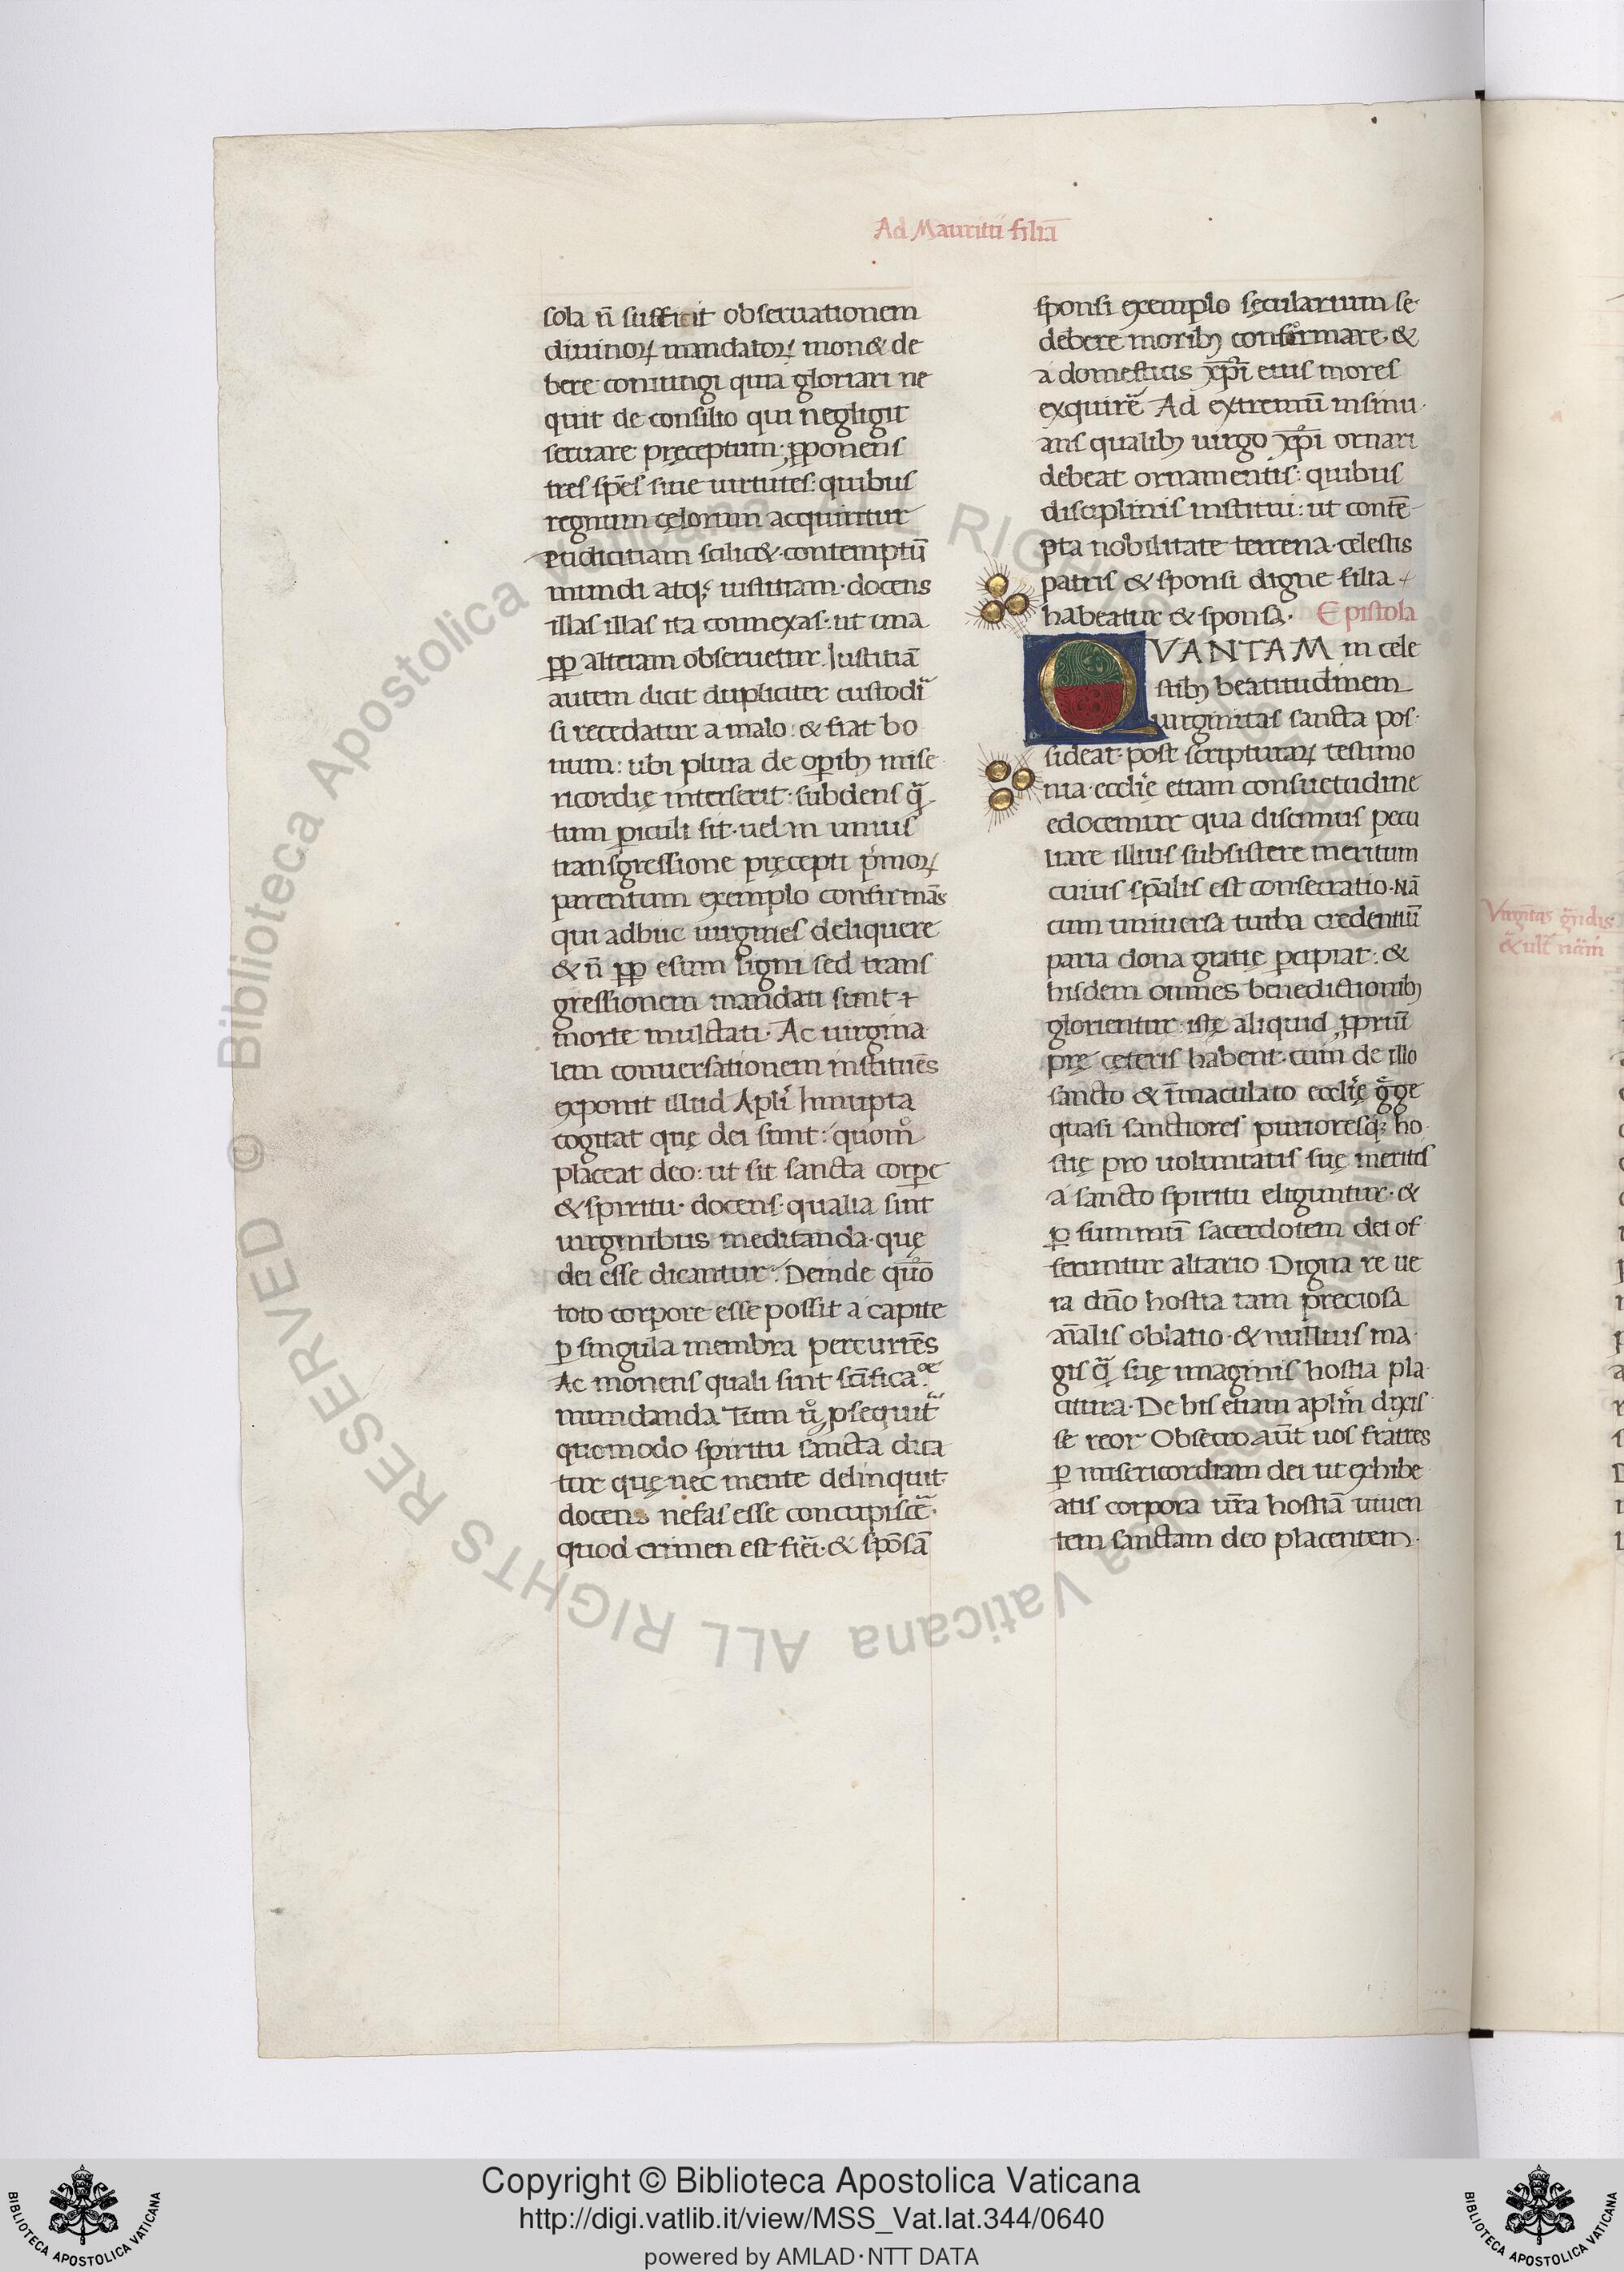 Ad Mauritii filiā
sola n̄ sufficit obseruationem
diuinoꝝ mandatoꝝ mon& de
bere coniungi quia gloriari ne
quit de consilio qui negligit
seruare pręceptum: ꝓponens
tres sp̄es siue uirtutes: quibus
regnum cęlorum acquiritur
Pudicitiam scilic&· contemptū
mundi atqꝫ iustitiam· docens
illas illas ita connexas: ut una
ꝓp alteram obseruetur. Iustitiā
autem dicit dupliciter custodi᷑
si recedatur a malo: & fiat bo
num: ubi plura de oꝑibꝫ mise
ricordię interserit: subdens q̄
tum ꝑiculi sit· uel in unius
transgressione pręcepti p̓moꝝ
parentum exemplo confirmās
qui adhuc uirgines deliquere
& n̄ ꝓp esum ligni sed trans
gressionem mandati sunt
morte mulctati· Ac uirgina
lem conuersationem instituēs
exponit illud Apl̓i Innupta
cogitat quę dei sunt: quom̊
placeat deo: ut sit sancta corꝑe
& spiritu· docens· qualia sint
uirginibus meditanda· quę
dei esse dicantur: Deinde quō
toto corpore esse possit a capite
ꝑ singula membra percurrēs
Ac monens quali sint sc̄ifica.ōe
mundanda Tum u̓o ꝓsequit᷑
quomodo spiritu sancta dica
tur quę nec mente delinquit·
docens nefas esse concupisce᷑·
quod crimen est fieri· & spōsā
sponsi exemplo sęcularium se·
debere moribꝫ conformare· &
a domesticis xp̄i eius mores
exquire᷑ Ad extremū insinu·
ans qualibꝫ uirgo xp̄i ornari
debeat ornamentis: quibus
disciplinis institui: ut contē
pta nobilitate terrena· celestis
patris & sponsi digne filia
habeatur & sponsa· Epistola
QVANTAM in cele
stibꝫ beatitudinem
uirginitas sancta pos·
sideat· post scripturaꝝ testimo
nia· eccl̓ię etiam consuetudine
edocemur qua discimus pecu
liare illius subsistere meritum
cuius sp̄alis est consecratio· Nā
cum uniuersa turba credentiū
paria dona gratię ꝑcipiat: &
hisdem omnes benedictionibꝫ
glorientur· istę aliquid ꝓpriū
prę ceteris habent· cum de illo
sancto & īmaculato eccl̓ię g̊ge
quasi sanctiores purioresqꝫ ho·
stię pro uoluntatis suę meritis
a sancto spiritu eliguntur· &
ꝑ summū sacerdotem dei of
feruntur altario Digna re ue
ra dn̄o hostia tam preciosa
an̄alis oblatio· & nullius ma·
gis q̄ suę imaginis hostia pla·
citura· De his etiam apl̓m dixis·
se reor Obsecro aūt uos fratres
ꝑ misericordiam dei ut exhibe
atis corpora ur̄a hostiā uiuen
tem sanctam deo placentem·
© Biblioteca Apostolica Vaticana ALL RIGHTS RESERVED
Copyright © Biblioteca Apostolica Vaticana
http://digi.vatlib.it/view/MSS_Vat.lat.344/0640
powered by AMLAD·NTT DATA
BIBLIOTECA APOSTOLICA VATICANA
BIBLIOTECA APOSTOLICA VATICANA